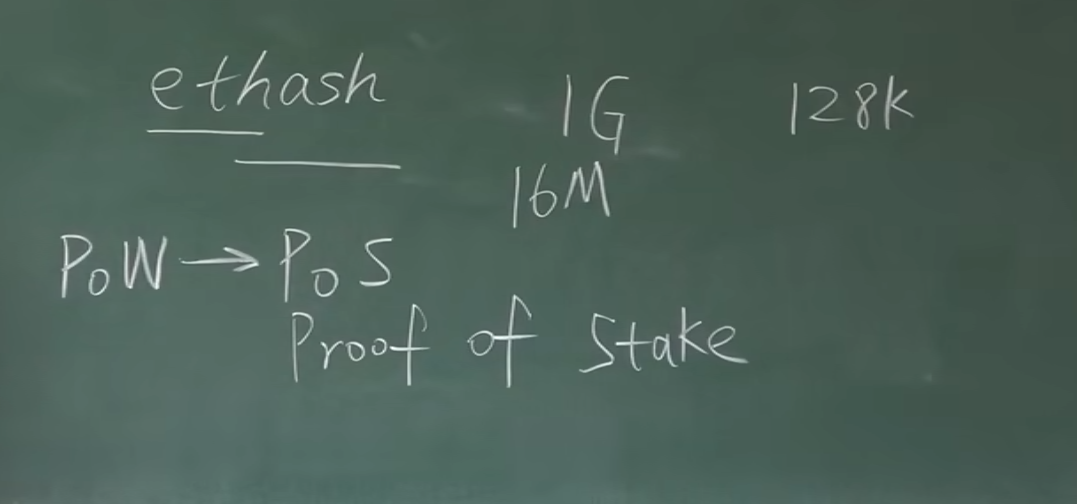 ethash 1G 128K
16M
PoW → PoS
Proof of Stake